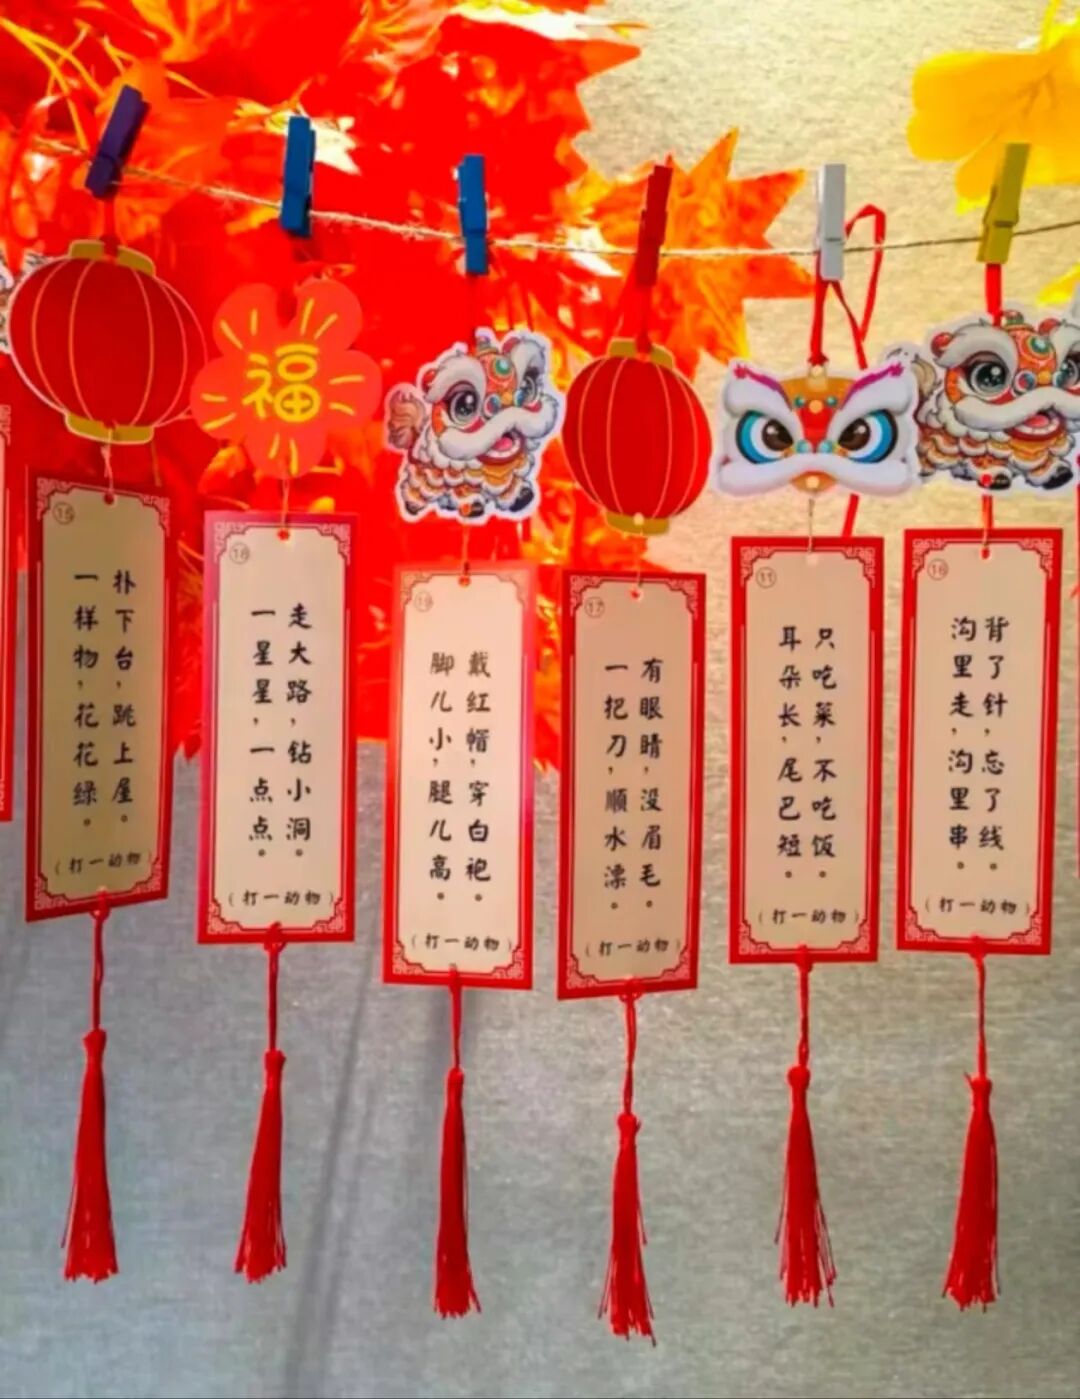 福
15
一样物，花花绿。
扑下台，跳上屋。
（打一动物）
18
一星星，一点点。
走大路，钻小洞。
（打一动物）
19
脚儿小，腿儿高。
戴红帽，穿白袍。
（打一动物）
17
一把刀，顺水漂。
有眼睛，没眉毛。
（打一动物）
11
耳朵长，尾巴短。
只吃菜，不吃饭。
（打一动物）
16
沟里走，沟里串。
背了针，忘了线。
（打一动物）